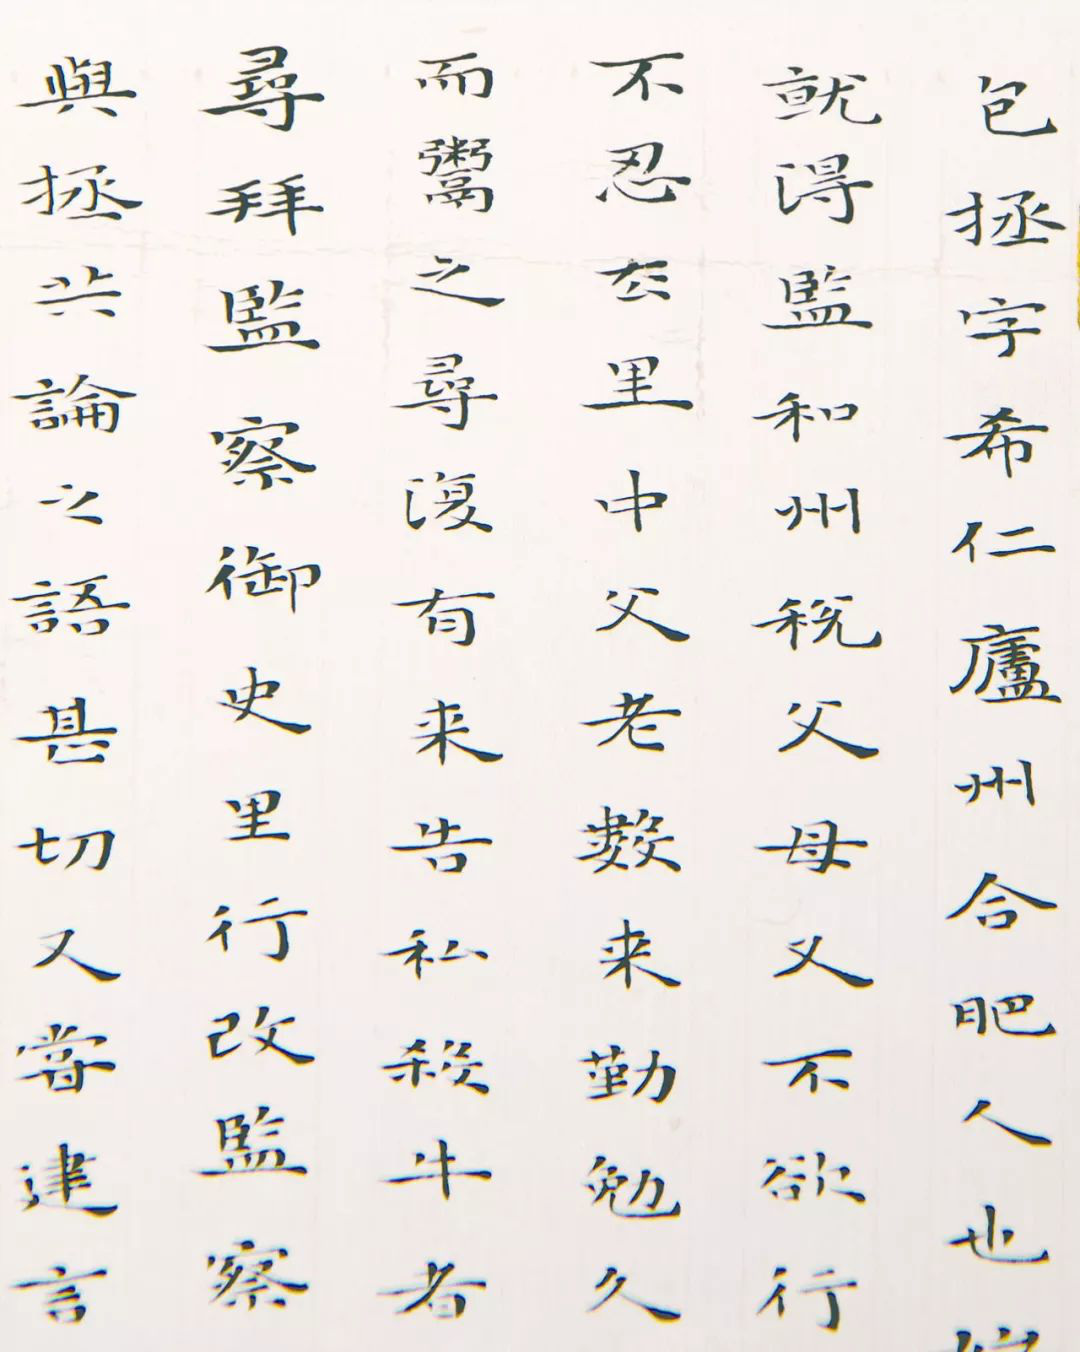 包拯字希仁廬州合肥人也
就得監和州税父母又不欲行
不忍去里中父老數来勤勉久
而鬻之尋復有来告私殺牛者
尋拜監察御史里行改監察
與拯共論之語甚切又嘗建言